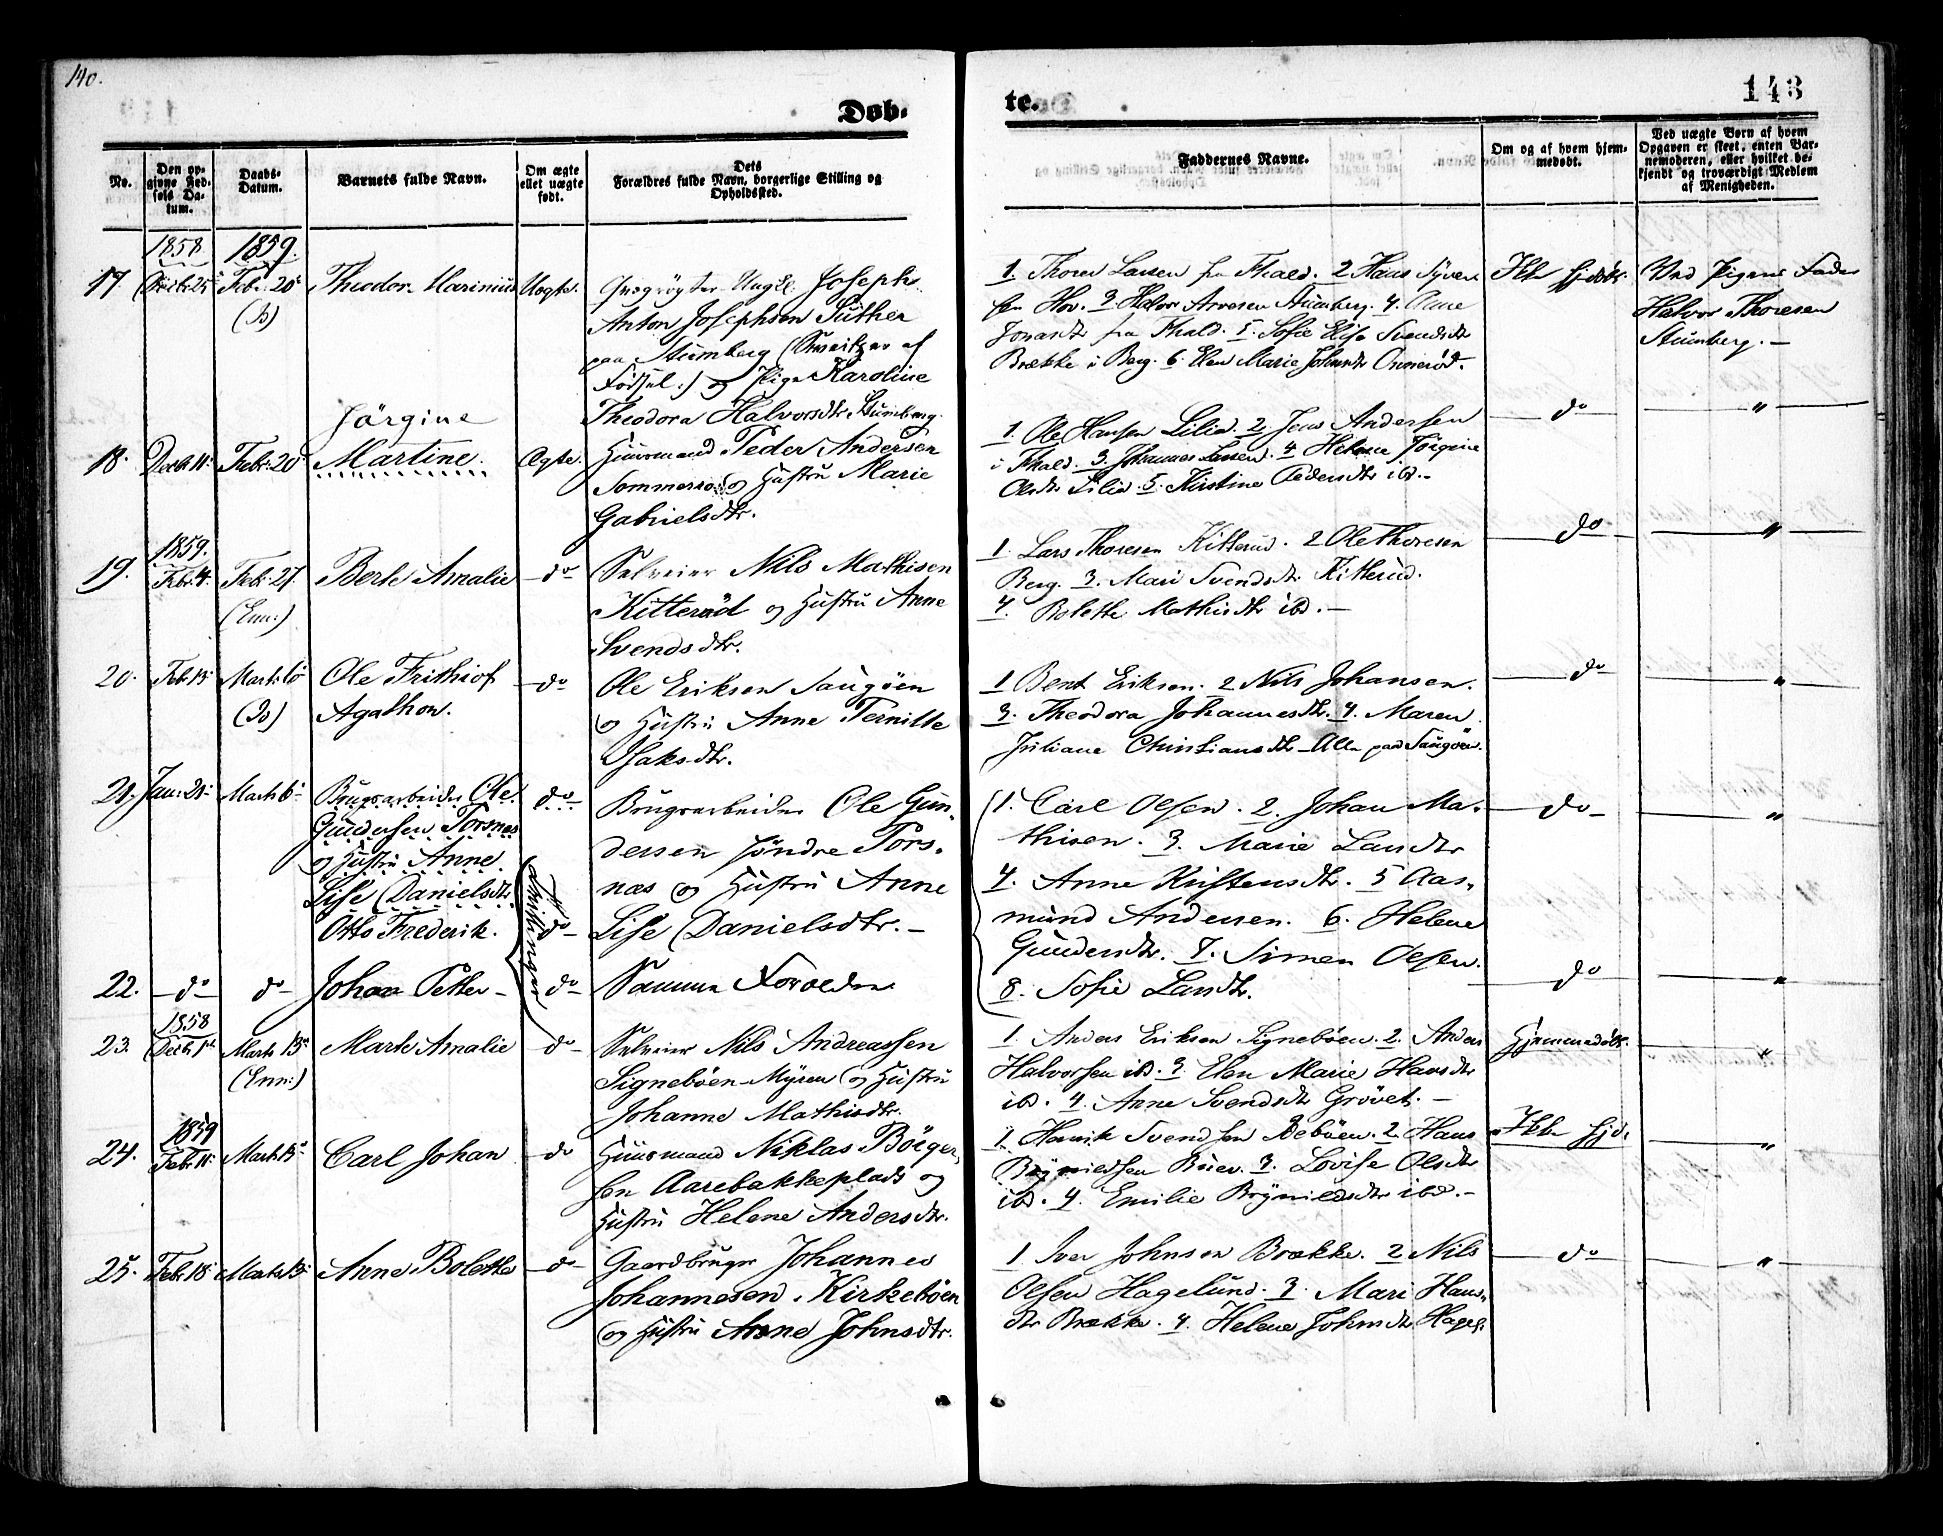 140.
143
Døb-
te.
No.
Den op-
givne Fød-
sels Da-
tum.
Daabs-
Datum.
Barnets fulde Navn.
Om ægte
ellet uægte
født.
Dets
Forældres fulde Navn, borgerlige Stilling og
Opholdssted.
Faddernes Navne.
Om og af hvem hjem-
medøbt.
Ved uægte Børn af hvem
Opgaven er skeet, enten Bar-
nemoderen, eller hvilket be-
kjendt og troværdigt Medlem
af Menigheden.
1858.
1859.
17.
Febr: 20de
Theodor Marinius
Uegte.
Ungk. Joseph
Anton Josephsen Suther
paa Stumberg (Sweitzer af
Fødsel:) og Pige Karoline
Theodora Halvorsdtr Stumberg.
1. Thorer Larsen fra Thald. 2 Hans Syver-
sen Hov. 3. Halvor Arvesen Stumberg. 4. Anne
Jonasdtr fra Thald. 5. Sofie Elise Svendsdtr
Brække i Berg. 6. Elen Marie Johnsdtr
Ikke hjdøbt.
Ved Pigens Fader
Halvor Thoresen
Stumberg. —
18.
Decb. 11.
Febr: 20
Jørgine
Martine.
Ægte.
Huusmand Peder Andersen
og Hustru Marie
Gabrielsdtr.
1. Ole Hansen Lilid. 2. Jens Andersen
i Thald. 3. Johannes Larsen. 4. Helene Jørgine
Olsdtr Lilid. 5. Kirstine Pedersdtr ibd. -
do
"
1859.
19.
Febr. 4.
Febr: 27.
(Enn:)
Berte Amalie
do
Selveier Nils Mathisen
Kitterød og Hustru Anne
Svendsdtr.
1. Lars Thoresen Kitterud. 2 Ole Thoresen
Berg. 3. Mari Svendsdtr Kitterud.
4. Bolette Mathisdtr ibd. —
do
"
20.
Feb 13
Marts 6
Ole Frithiof
Agathon.
do
Ole Eriksen Saugøen
og Hustru Anne Pernille
Isaksdtr.
1 Bent Eriksen. 2 Nils Johansen.
3. Theodora Johannesdtr. 4. Maren
Juliane Christiansdtr - Alle paa Saugøen.
do
"
21.
Jan: 21
Marts 6
Brugsarbeider Ole
Gundersen Torsnes
og Hustru Anne
Lise Danielsdtr.
Otto Frederik.
do
Tvillinger
do
Brugsarbeider Ole Gun-
dersen søndre Tors-
næs og Hustru Anne
Lise Danielsdtr. —
1. Carl Olsen. 2. Johan Ma-
thisen. 3. Marie Larsdtr
4. Anne Kristensdtr. 5 Aas-
mund Andersen. 6. Helene
Gundersdtr. 7. Simen Olsen.
8. Sofie Larsdtr.
do
"
22.
do
do
Johan Petter
do
Samme Forældre.
do
"
1858
23.
Decb. 1ste
Marts 13de
(Enn:)
Marte Amalie
do
Selveier Nils Andreassen
Signebøen-Myren og Hustru
Johanne Mathisdtr.
1. Anders Eriksen Signebøen. 2. Anders
Halvorsen ibd. 3 Elen Marie Hansdtr
ibd. 4. Anne Svendsdtr Grøvet. —
Hjemmedøbt.
"
1859
24.
Febr. 11.
Marts 13
Carl Johan
do
Huusmand Niklas Börger-
sen Aarebakkeplads og
Hustru Helene Andersdtr.
1. Henrik Svendsen Rebøen. 2. Hans
Brynildsen Buer. 3. Lovise Olsdtr
ibd. 4. Emilie Brynildsdtr ibd. -
Ikke hjd.
"
25.
Febr. 18
Marts 13
Anne Bolette
do
Gaardbruger Johannes
Johannesen Kirkebøen
og Hustru Anne Johnsdtr.
1. Iver Johnsen Brække. 2 Nils
Olsen Hagelund. 3. Mari Hans-
dtr Brække. 4. Helene Johnsdtr Hagel:
do
"